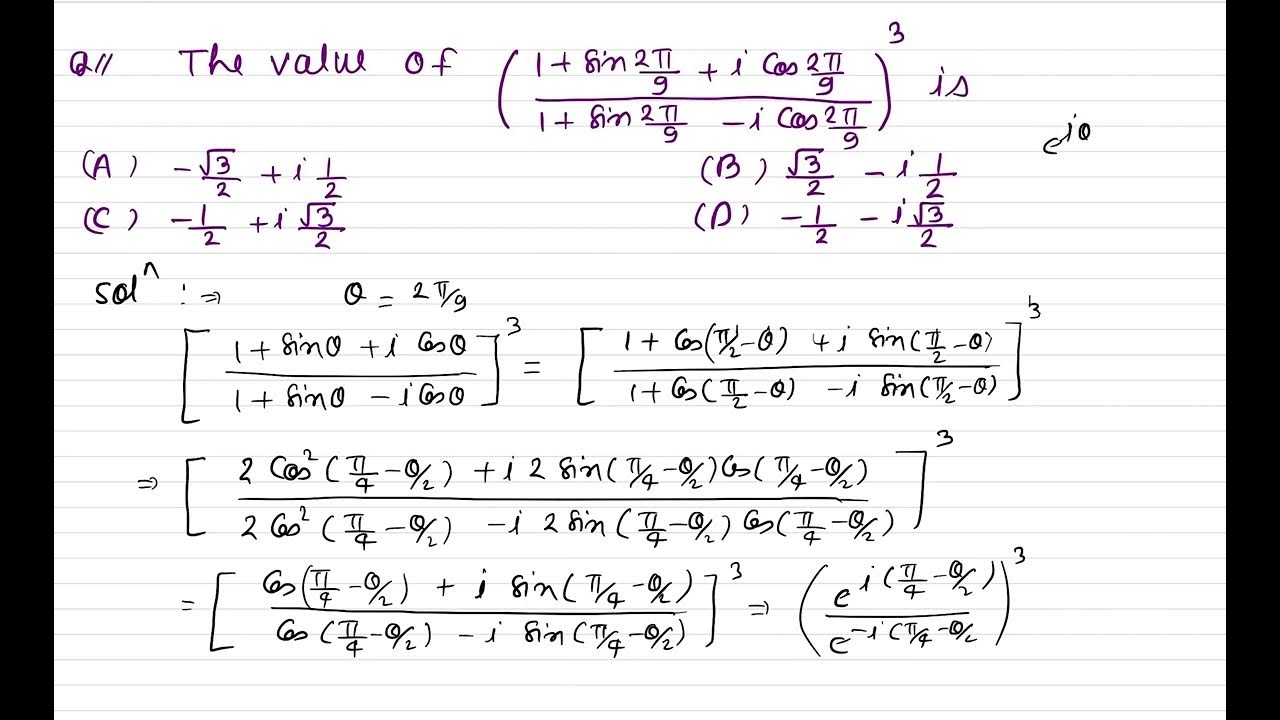 Q// The value of ((1 + sin 2π/9 + i cos 2π/9)/(1 + sin 2π/9 - i cos 2π/9))^3 is
e^iθ
(A) -√3/2 + i 1/2 (B) √3/2 - i 1/2
(C) -1/2 + i √3/2 (D) -1/2 - i √3/2
Sol^n :⇒ θ = 2π/9
[(1 + sinθ + i cosθ)/(1 + sinθ - i cosθ)]^3 = [(1 + cos(π/2 - θ) + i sin(π/2 - θ))/(1 + cos(π/2 - θ) - i sin(π/2 - θ))]^3
⇒ [(2 cos²(π/4 - θ/2) + i 2 sin(π/4 - θ/2) cos(π/4 - θ/2))/(2 cos²(π/4 - θ/2) - i 2 sin(π/4 - θ/2) cos(π/4 - θ/2))]^3
= [(cos(π/4 - θ/2) + i sin(π/4 - θ/2))/(cos(π/4 - θ/2) - i sin(π/4 - θ/2))]^3 ⇒ (e^i(π/4 - θ/2)/e^-i(π/4 - θ/2)^3